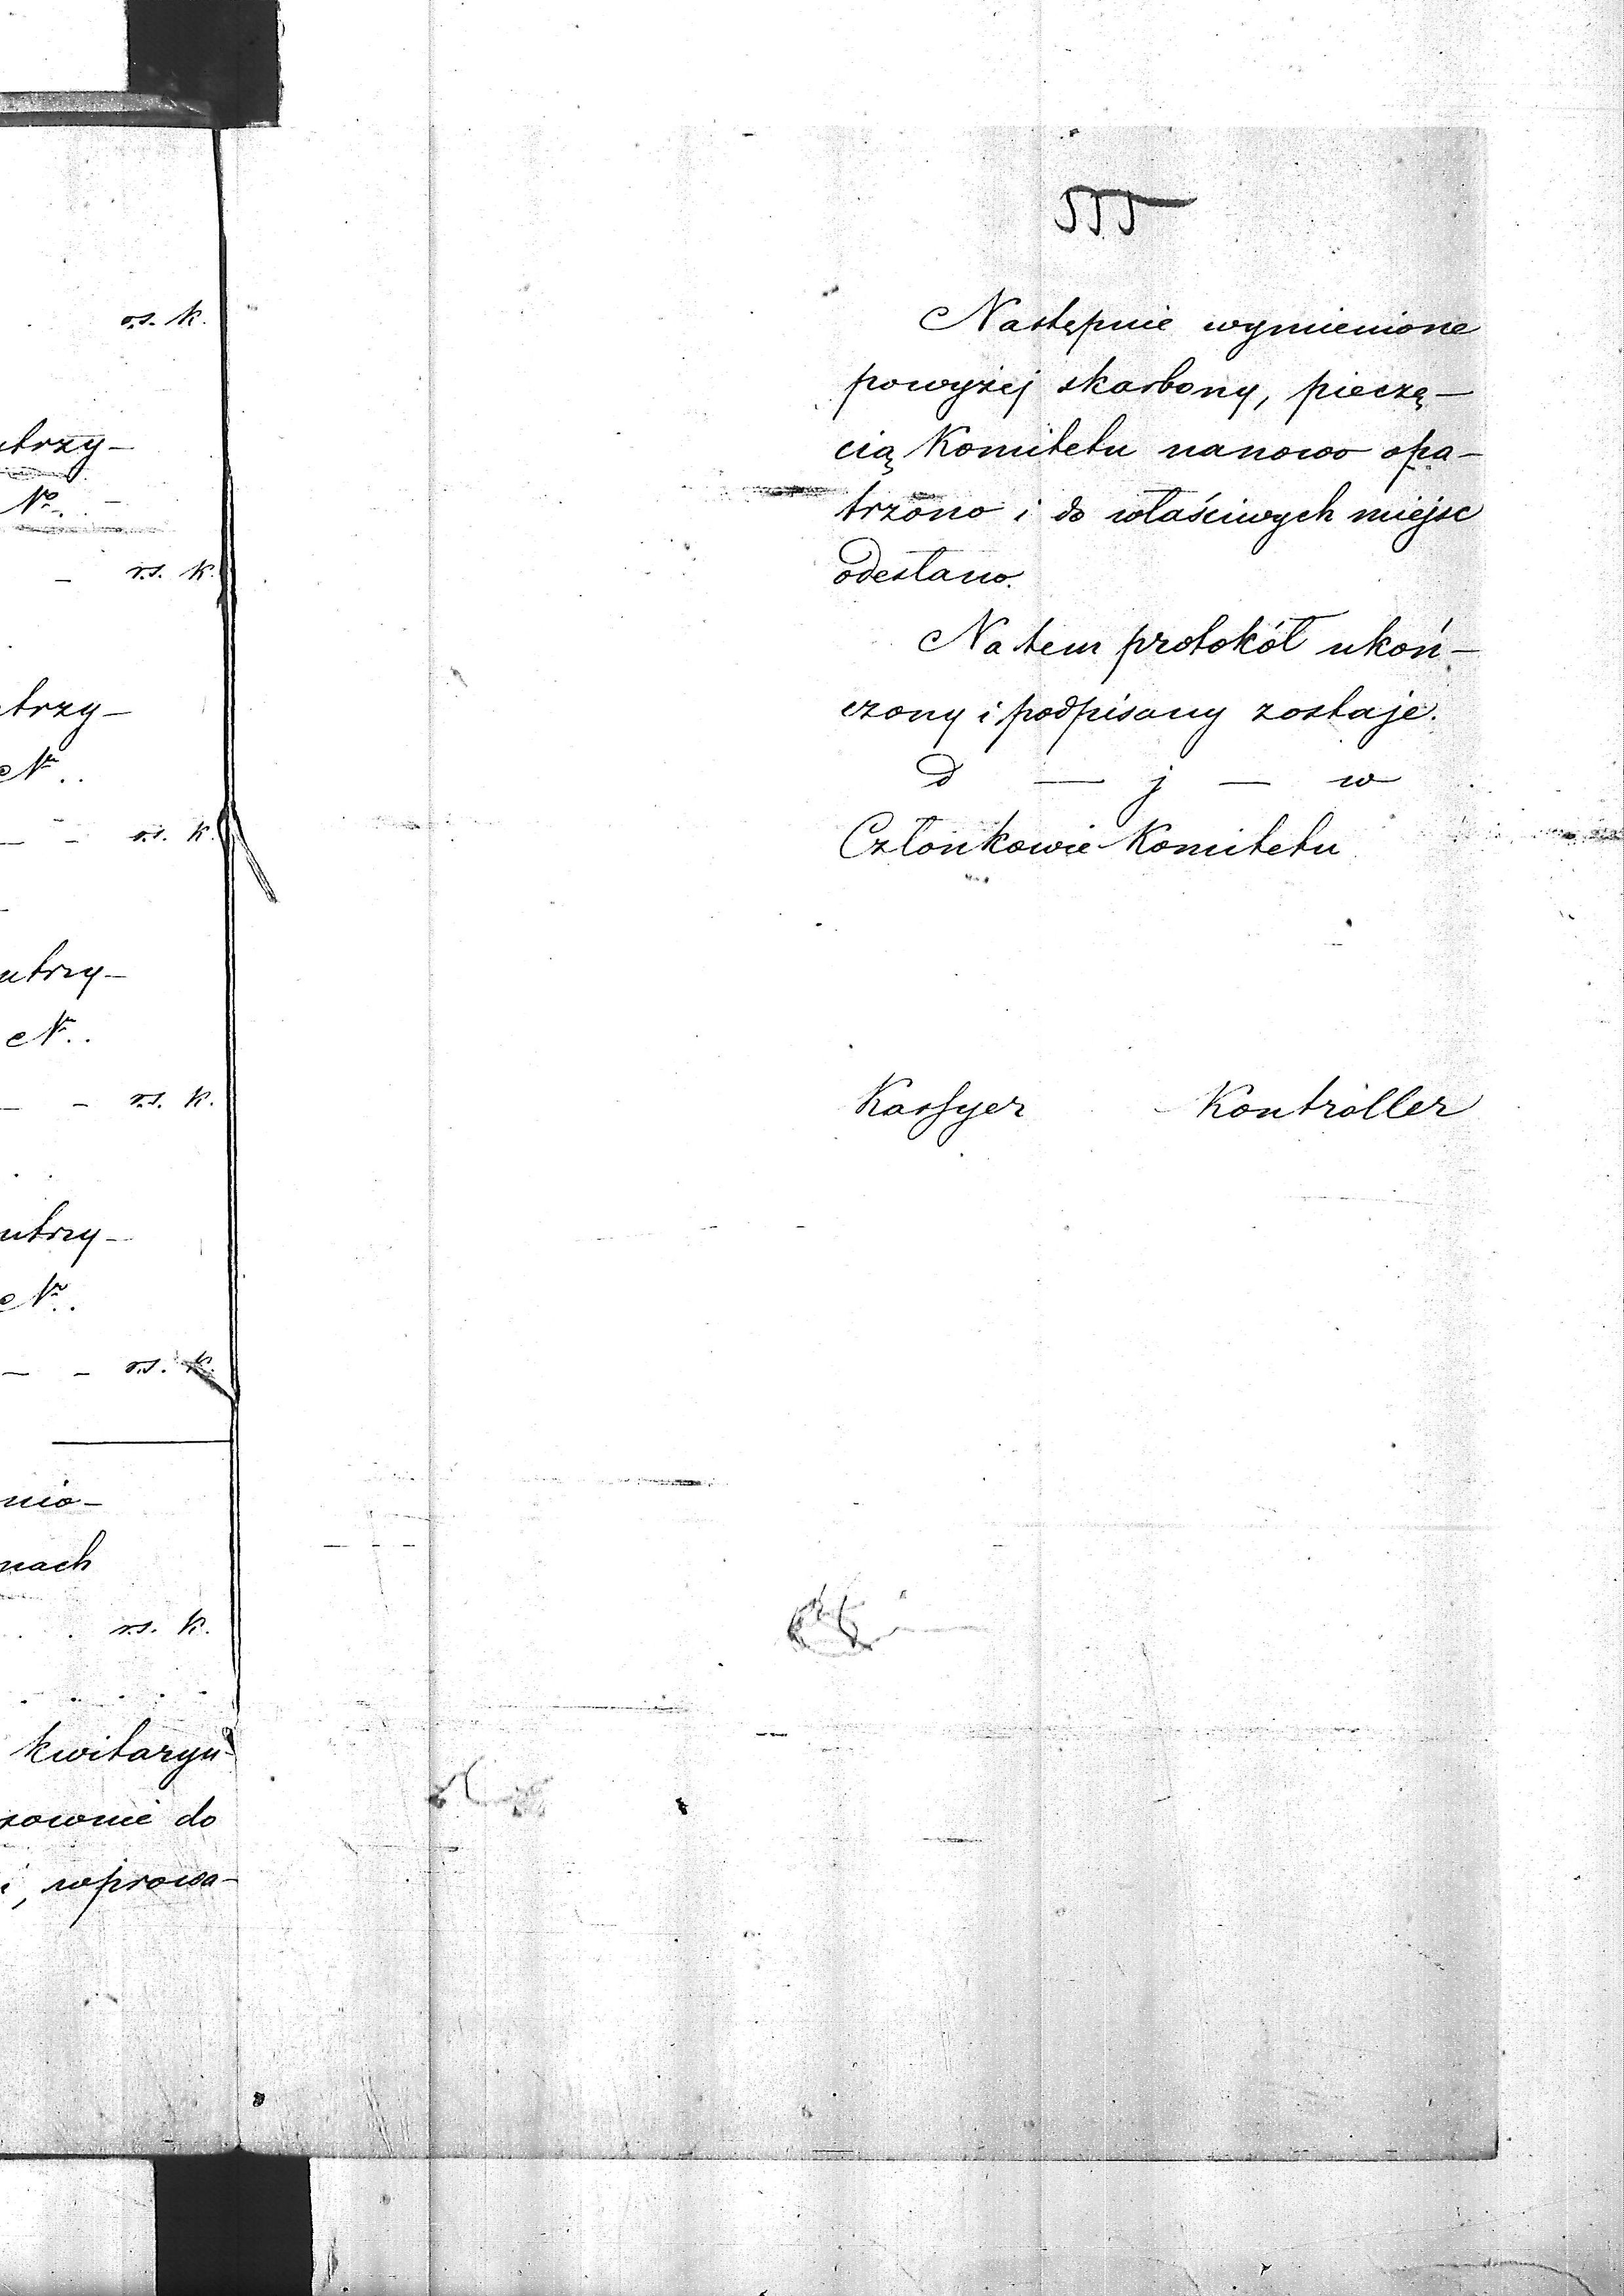 r.s. k.
trzy-
№.
r.s. k.
trzy-
№..
r.s. k.
trzy-
№..
r.s. k.
trzy-
№..
r.s. k.
nio-
nach
r.s. k.
kwitaryu-
sownie do
i, wprowa-
555
Następnie wymienione
powyżej skarbony, pieczę-
cią Komitetu nanowo opa-
trzono i do właściwych miejsc
odesłano.
Na tem protokół ukoń-
czony i podpisany zostaje.
d — j — w
Członkowie Komitetu
Kassyer Kontroller